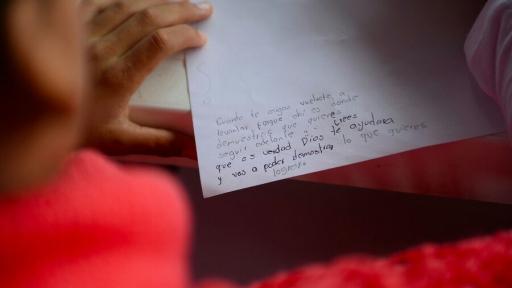 Cuando te caigas vuelvete a
levantar porque ahi es donde
demuestras que quieres
seguir adelante si crees
que es verdad Dios te ayudara
y vas a poder demostrar lo que quieres
lograr